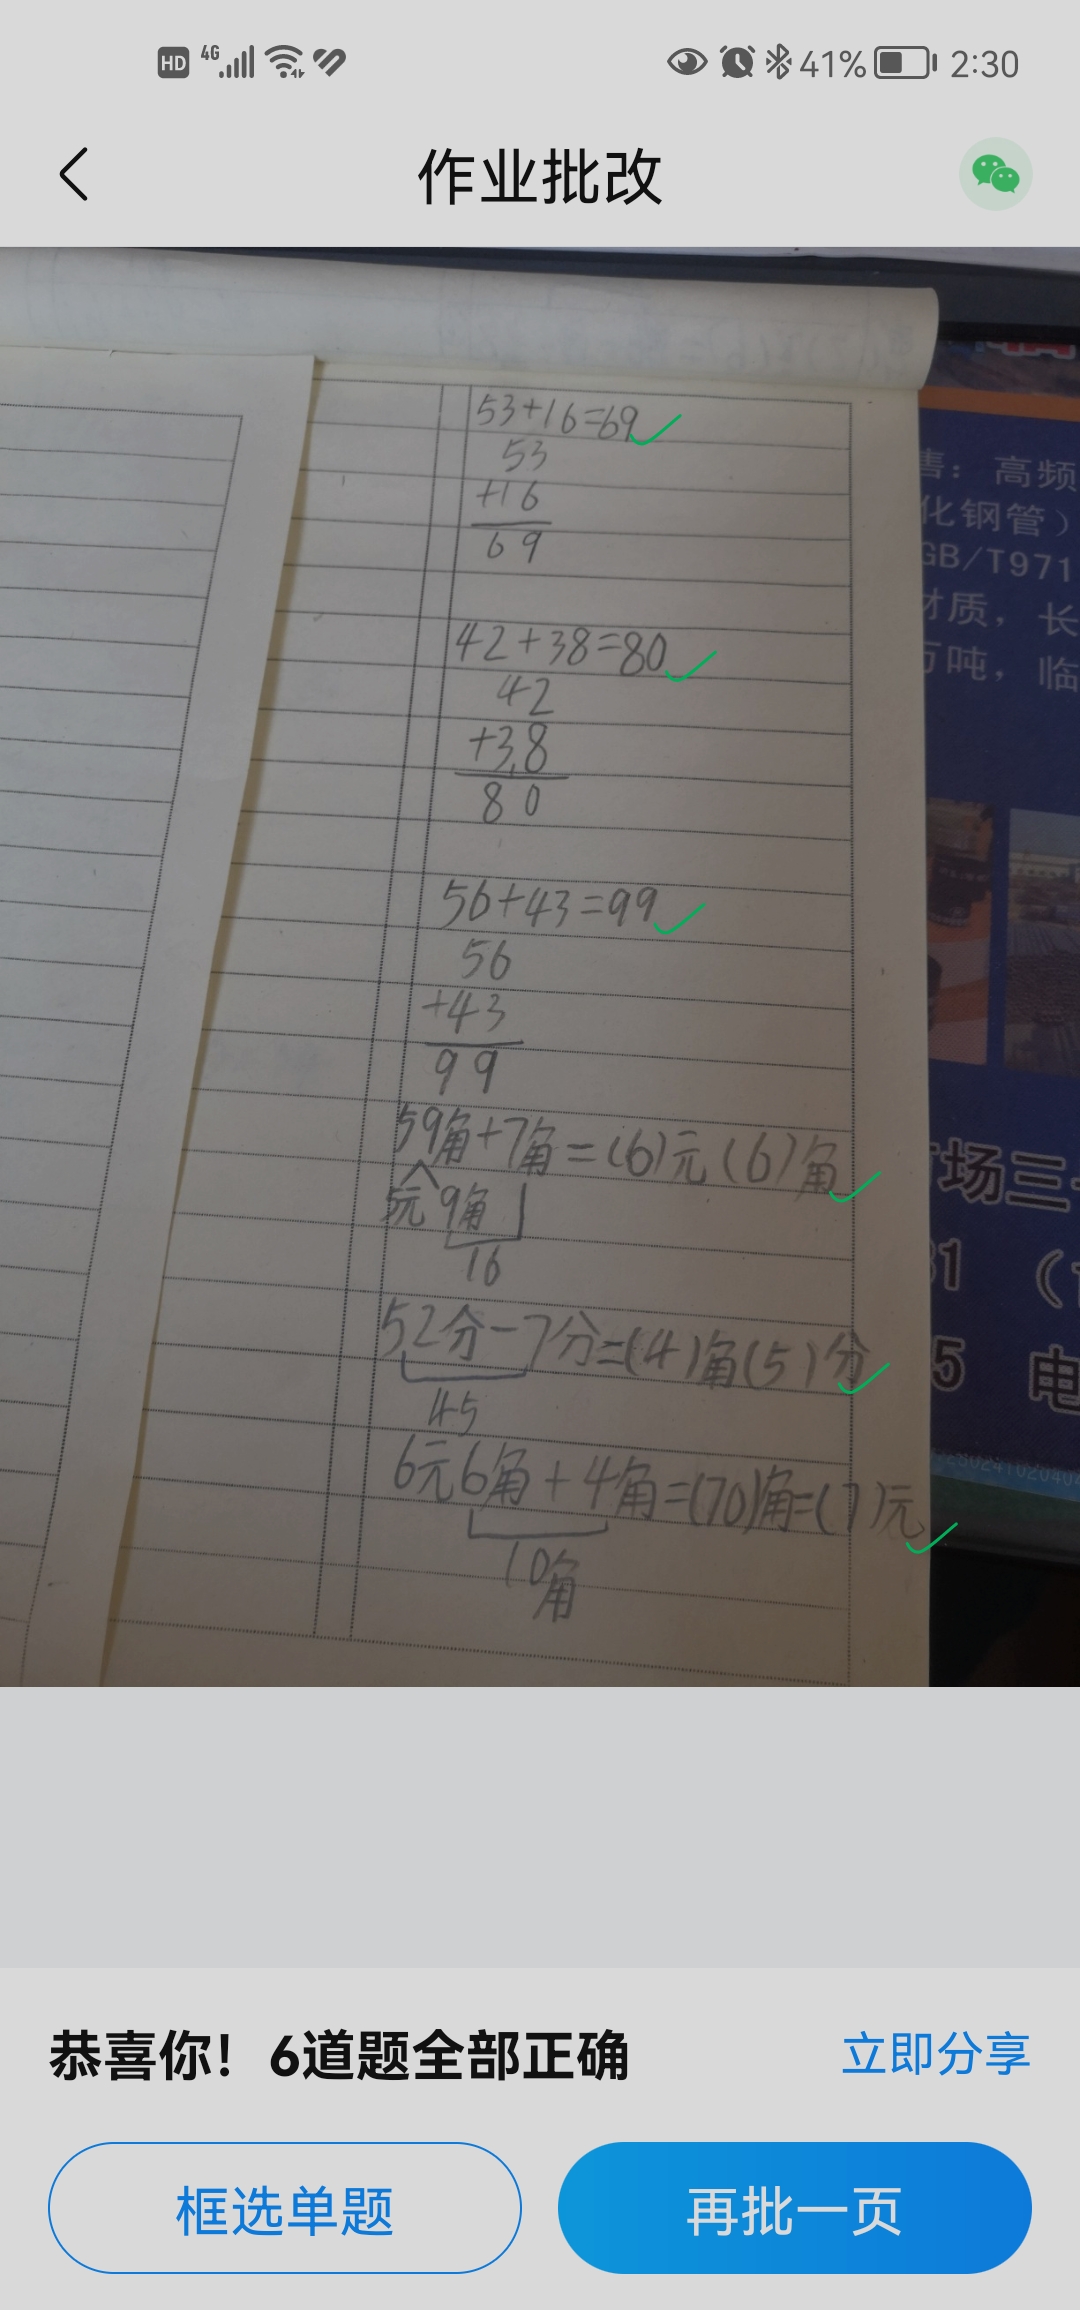 HD 4G 41% 2:30
作业批改
53+16=69
53
+16
69
42+38=80
42
+38
80
56+43=99
56
+43
99
59角+7角=(6)元(6)角
5元 9角
16
52分-7分=(4)角(5)分
45
6元6角+4角=(70)角=(7)元
10角
高频
化钢管）
GB/T971
材质，长
万吨，临
场三
81
5 电
恭喜你！6道题全部正确
立即分享
框选单题
再批一页